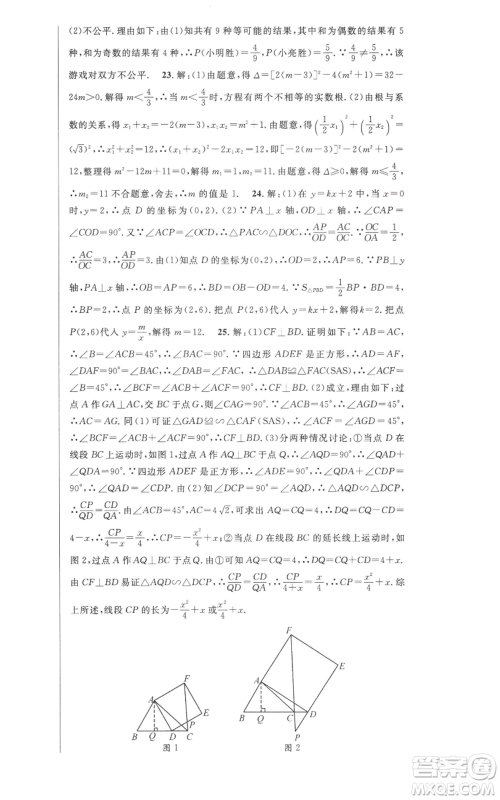 (2)不公平. 理由如下:由(1)知共有 9 种等可能的结果,其中和为偶数的结果有 5
种,和为奇数的结果有 4 种,∴P(小明胜)=4/9,P(小亮胜)=5/9. ∵4/9≠5/9,∴该
游戏对双方不公平. 23. 解:(1)由题意,得 Δ=[2(m-3)]²-4(m²+1)=32-
24m>0. 解得 m<4/3. ∴当 m<4/3 时,方程有两个不相等的实数根. (2)由根与系
数的关系,得 x₁+x₂=-2(m-3),x₁x₂=m²+1. 由题意,得(1/2x₁)²+(1/2x₂)²=
(√3)²,∴x₁²+x₂²=12,∴(x₁+x₂)²-2x₁x₂=12,即[-2(m-3)]²-2(m²+1)=
12,整理得 m²-12m+11=0. 解得 m₁=1,m₂=11. 由题意,得 Δ≥0,∴m≤4/3,
∴m₂=11 不合题意,舍去,∴m 的值是 1. 24. 解:(1)在 y=kx+2 中,当 x=0
时,y=2,∴点 D 的坐标为(0,2). (2)∵PA⊥x 轴,OD⊥x 轴,∴∠CAP=
∠COD=90°. 又∵∠ACP=∠OCD,∴△PAC∽△DOC,∴AP/OD=AC/OC. ∵OC/OA=1/2,
∴AC/OC=3,∴AP/2=3. ∴AP=6. 又∵PB⊥y
轴,PA⊥x 轴,∴OB=AP=6,∴BD=OB-OD=6-2=4. ∵S△PBD=1/2BP·BD=4,
∴BP=2,∴点 P 的坐标为(2,6). 把点 P(2,6)代入 y=kx+2,解得 k=2. 把点
P(2,6)代入 y=m/x,解得 m=12. 25. 解:(1)CF⊥BD. 证明如下:∵AB=AC,
∴∠B=∠ACB=45°,∴∠BAC=90°. ∵四边形 ADEF 是正方形,∴AD=AF,
∠DAF=90°=∠BAC,∴∠BAD=∠CAF. ∴△BAD≌△CAF(SAS),∴∠ACF=
∠B=45°,∴∠BCF=∠ACB+∠ACF=90°,∴CF⊥BD. (2)成立,理由如下:过
点 A 作 AG⊥AC 交 BC 于点 G,则∠CAG=90°. ∵∠ACB=45°,∴∠AGD=45°,
∴AC=AG. 同(1)可证△GAD≌△CAF(SAS),∴∠ACF=∠AGD=45°,∴∠BCF
=∠ACB+∠ACF=90°,即 CF⊥BD. (3)分两种情况讨论:①当点 D 在
线段 BC 上运动时,如图 1,过点 A 作 AQ⊥BC 于点 Q,则∠DQA=90°,∴∠QAD
+∠QDA=90°. ∵四边形 ADEF 是正方形,∴∠ADF=90°,∴∠QDA+∠CDP=
90°,∴∠QAD=∠CDP. 由(2)知∠DCP=90°,∴∠DCP=∠DQA,∴△AQD∽
△DCP,∴CP/QD=CD/QA. ∵∠ACB=45°,AC=4√2,∴AQ=CQ=4,∵CD=x,∴DQ=
4-x,∴CP/(4-x)=x/4,∴CP=-x²/4+x;②当点 D 在线段 BC 的延长线上运动时,如
图 2,过点 A 作 AQ⊥BC 于点 Q. 由①可知 AQ=CQ=4,∴DQ=4+x.
由 CF⊥BD 易证△AQD∽△DCP,∴CP/QD=CD/QA,∴CP/(4+x)=x/4,∴CP=x²/4+x. 综
上所述,线段 CP 的长为-x²/4+x 或x²/4+x.
F
A
E
P
B Q D C
图 1
F
E
A
B Q C D
P
图 2